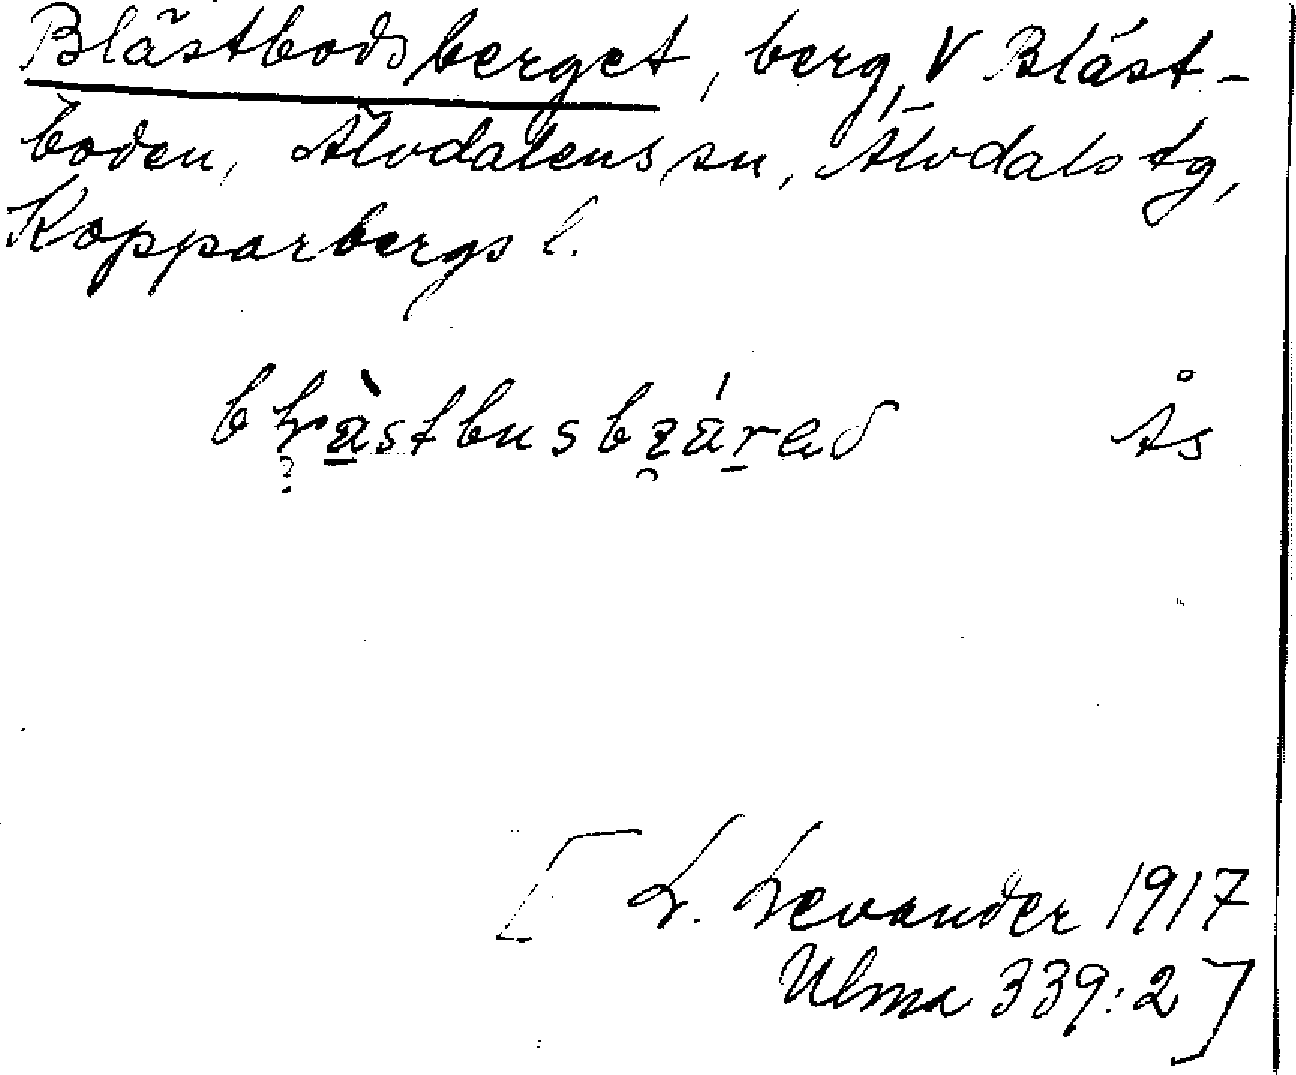 Blästbodsberget, berg, V Bläst-
boden, Älvdalens sn, Älvdals tg,
Kopparbergs l.
Ås
[L. Levander 1917
Ulma 339:2]